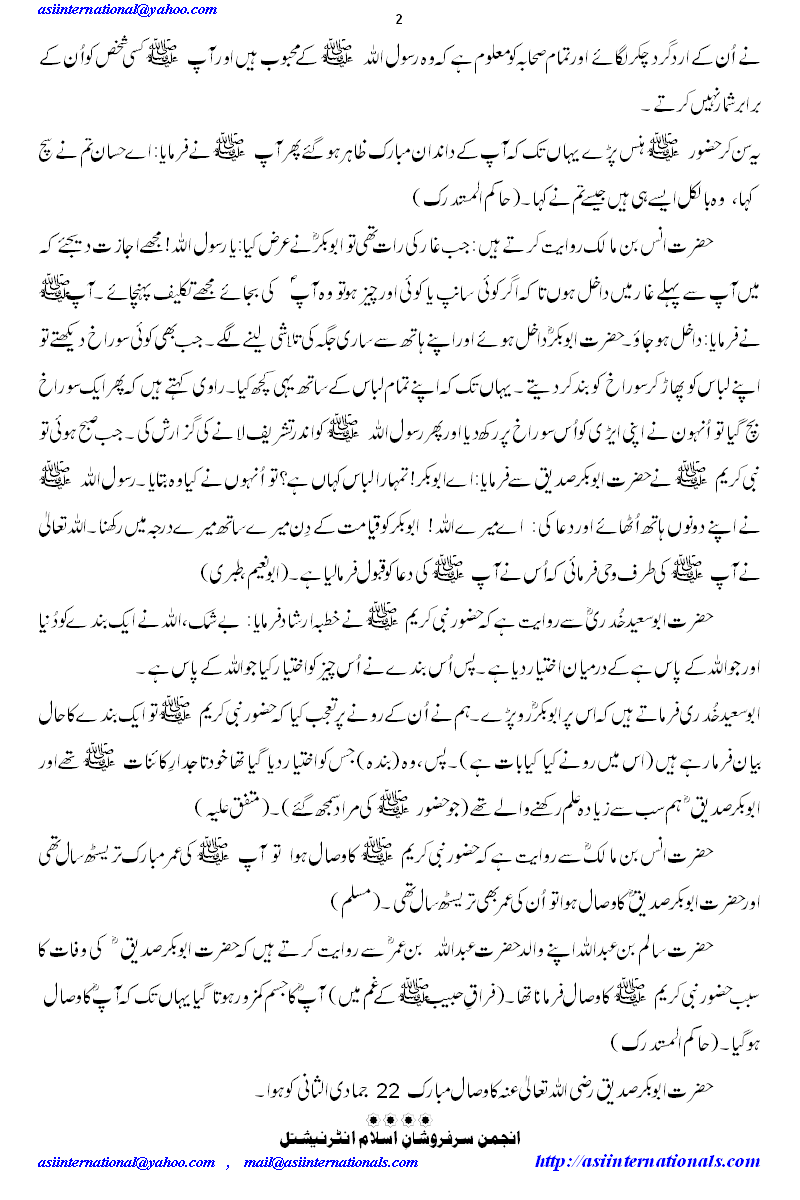 asiinternational@yahoo.com
2
نے اُن کے ارد گرد چکر لگائے اور تمام صحابہ کو معلوم ہے کہ وہ رسول اللہ ﷺ کے محبوب ہیں اور آپ ﷺ کسی شخص کو اُن کے
برابر شمار نہیں کرتے ۔
یہ سن کر حضور ﷺ ہنس پڑے یہاں تک کہ آپ کے داندان مبارک ظاہر ہو گئے پھر آپ ﷺ نے فرمایا: اے حسان تم نے سچ
کہا، وہ بالکل ایسے ہی ہیں جیسے تم نے کہا۔ (حاکم المستدرک)
حضرت انس بن مالک روایت کرتے ہیں: جب غار کی رات تھی تو ابوبکرؓ نے عرض کیا: یا رسول اللہ! مجھے اجازت دیجئے کہ
میں آپ سے پہلے غار میں داخل ہوں تا کہ اگر کوئی سانپ یا کوئی اور چیز ہو تو وہ آپؐ کی بجائے مجھے تکلیف پہنچائے ۔ آپ ﷺ
نے فرمایا: داخل ہو جاؤ۔ حضرت ابوبکرؓ داخل ہوئے اور اپنے ہاتھ سے ساری جگہ کی تلاشی لینے لگے ۔ جب بھی کوئی سوراخ دیکھتے تو
اپنے لباس کو پھاڑ کر سوراخ کو بند کر دیتے ۔ یہاں تک کہ اپنے تمام لباس کے ساتھ یہی کچھ کیا۔ راوی کہتے ہیں کہ پھر ایک سوراخ
بچ گیا تو اُنہون نے اپنی ایڑی کو اُس سوراخ پر رکھ دیا اور پھر رسول اللہ ﷺ کو اندر تشریف لانے کی گزارش کی ۔ جب صبح ہوئی تو
نبی کریم ﷺ نے حضرت ابوبکر صدیق سے فرمایا: اے ابوبکر! تمہارا لباس کہاں ہے؟ تو اُنہوں نے کیا وہ بتایا ۔ رسول اللہ ﷺ
نے اپنے دونوں ہاتھ اُٹھائے اور دعا کی: اے میرے اللہ! ابوبکر کو قیامت کے دِن میرے ساتھ میرے درجہ میں رکھنا ۔ اللہ تعالیٰ
نے آپ ﷺ کی طرف وحی فرمائی کہ اُس نے آپ ﷺ کی دعا کو قبول فرما لیا ہے ۔ (ابو نعیم ،طبری)
حضرت ابو سعید خُدریؓ سے روایت ہے کہ حضور نبی کریم ﷺ نے خطبہ ارشاد فرمایا: بے شک، اللہ نے ایک بندے کو دُنیا
اور جو اللہ کے پاس ہے کے درمیان اختیار دیا ہے ۔ پس اُس بندے نے اُس چیز کو اختیار کیا جو اللہ کے پاس ہے ۔
ابو سعید خُدری فرماتے ہیں کہ اس پر ابوبکرؓ رو پڑے ۔ ہم نے اُن کے رونے پر تعجب کیا کہ حضور نبی کریم ﷺ تو ایک بندے کا حال
بیان فرما رہے ہیں (اس میں رونے کیا کیا بات ہے)۔ پس، وہ (بندہ) جس کو اختیار دیا گیا تھا خود تاجدارِ کائنات ﷺ تھے اور
ابوبکر صدیقؓ ہم سب سے زیادہ علم رکھنے والے تھے (جو حضور ﷺ کی مراد سمجھ گئے)۔ (متفق علیہ)
حضرت انس بن مالکؓ سے روایت ہے کہ حضور نبی کریم ﷺ کا وصال ہوا تو آپ ﷺ کی عمر مبارک تریسٹھ سال تھی
اور حضرت ابوبکر صدیقؓ کا وصال ہوا تو اُن کی عمر بھی تریسٹھ سال تھی ۔ (مسلم)
حضرت سالم بن عبداللہ اپنے والد حضرت عبداللہ بن عمرؓ سے روایت کرتے ہیں کہ حضرت ابوبکر صدیقؓ کی وفات کا
سبب حضور نبی کریم ﷺ کا وصال فرمانا تھا ۔ (فراقِ حبیب ﷺ کے غم میں) آپؓ کا جسم کمزور ہوتا گیا یہاں تک کہ آپؓ کا وصال
ہو گیا ۔ (حاکم المستدرک)
حضرت ابوبکر صدیق رضی اللہ تعالیٰ عنہ کا وصال مبارک 22 جمادی الثانی کو ہوا ۔
انجمن سرفروشانِ اسلام انٹرنیشنل
asiinternational@yahoo.com , mail@asiinternationals.com http://asiinternationals.com